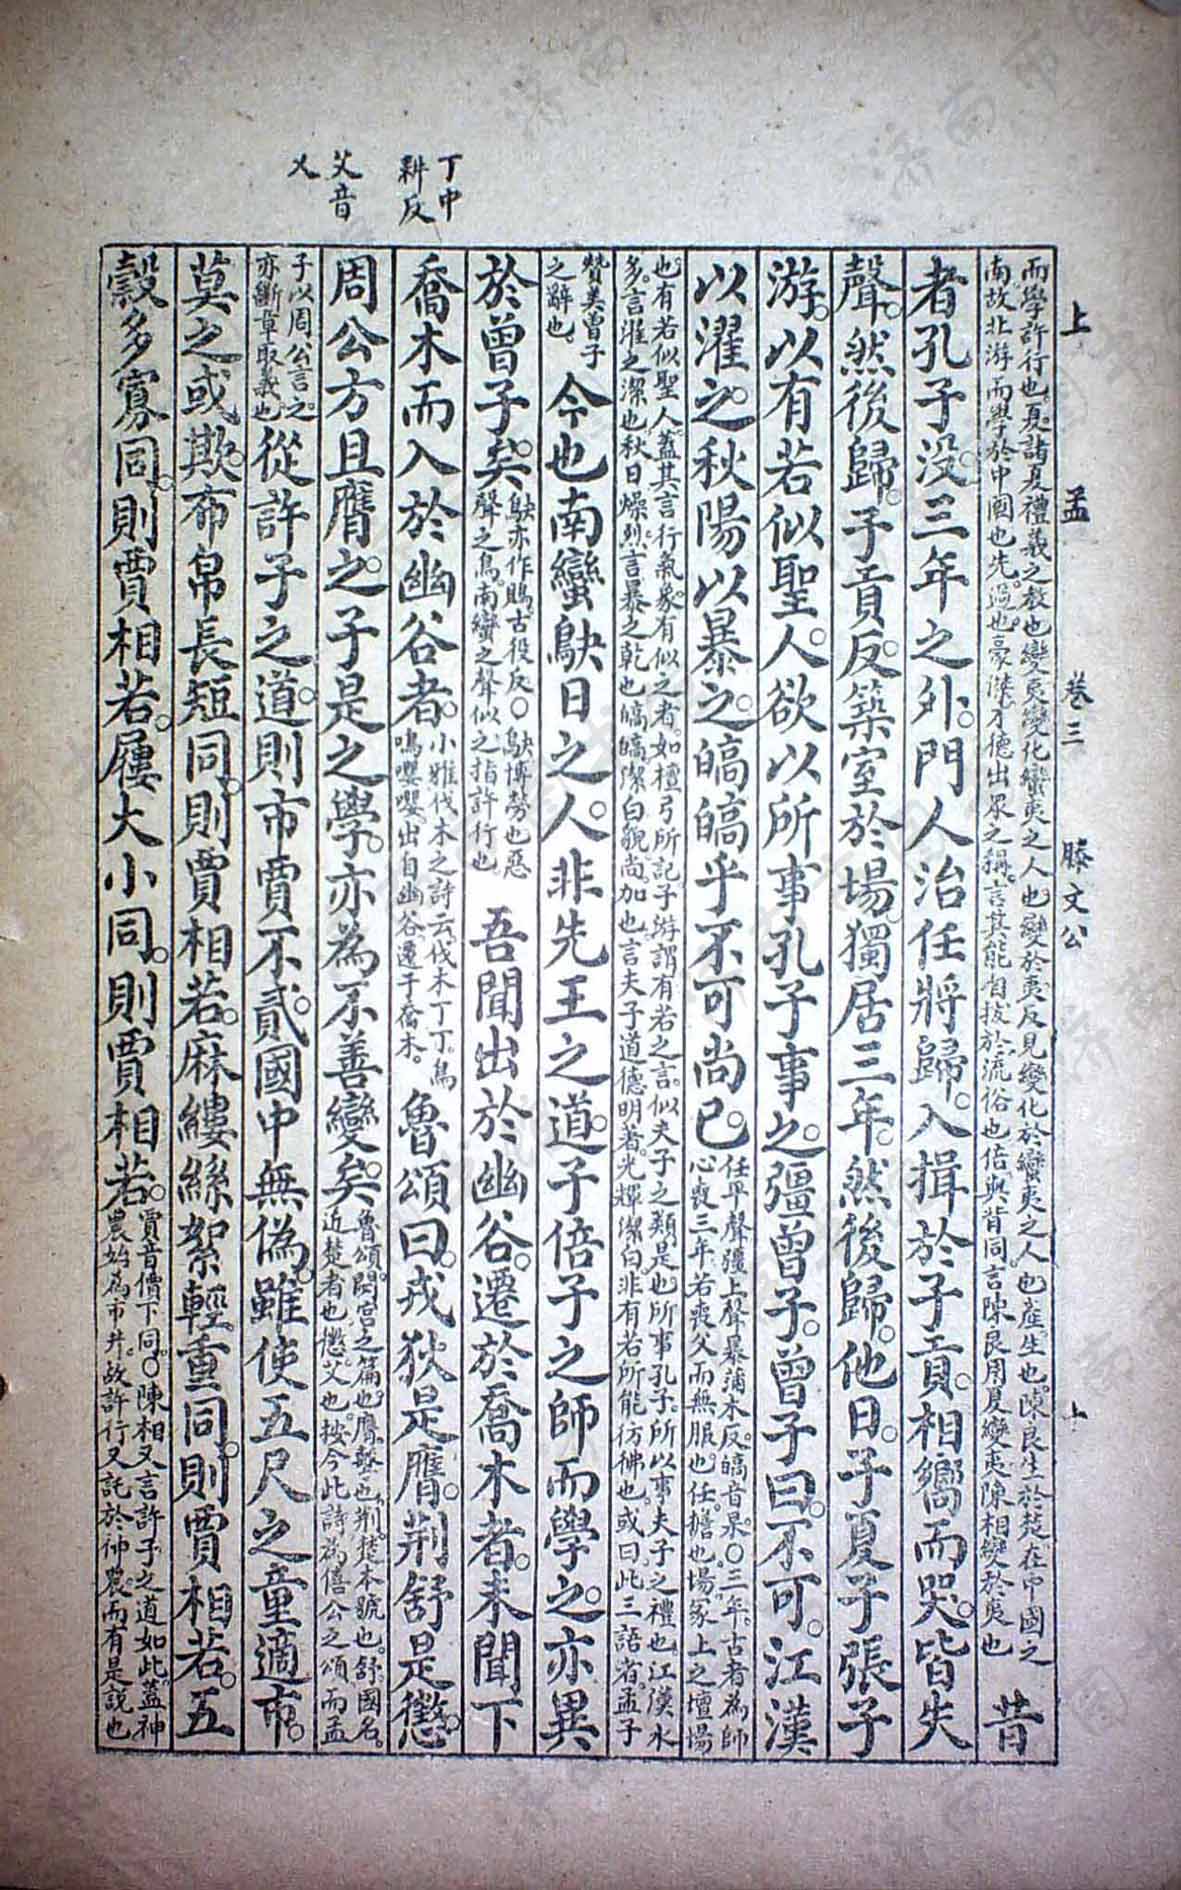 丁中
耕反
艾音
乂
上　孟　卷三　滕文公　上
而學許行也。夏諸夏禮義之教也變夷變化蠻夷之人也變於夷反見變化於蠻夷之人也產生也陳良生於楚在中國之
南故北游而學於中國也先過也豪傑才德出眾之稱言其能自拔於流俗也倍與背同言陳良用夏變夷陳相變於夷也
昔
者孔子没三年之外。門人治任將歸。入揖於子貢。相嚮而哭。皆失
聲。然後歸。子貢反。築室於場。獨居三年。然後歸。他日。子夏子張子
游。以有若似聖人。欲以所事孔子事之。彊曾子。曾子曰。不可。江漢
以濯之。秋陽以暴之。皜皜乎不可尚已。
任平聲彊上聲暴蒲木反皜音杲。○三年。古者為師
心喪三年若喪父而無服也。任。擔也。場。冢上之壇場
也。有若似聖人。蓋其言行氣象有似之者。如檀弓所記子游謂有若之言。似夫子之類是也。所事孔子。所以事夫子之禮也。江漢水
多。言濯之潔也。秋日燥烈。言暴之乾也。皜皜潔白貌尚加也。言夫子道德明著。光輝潔白。非有若所能彷彿也。或曰。此三語者。孟子
贊美曾子
之辭也。
今也南蠻鴃舌之人。非先王之道。子倍子之師而學之。亦異
於曾子矣。
鴃亦作鵙。古役反。○鴃博勞也惡
聲之鳥。南蠻之聲似之。指許行也。
吾聞出於幽谷。遷於喬木者。未聞下
喬木而入於幽谷者。
小雅伐木之詩云。伐木丁丁。鳥
鳴嚶嚶。出自幽谷。遷于喬木。
魯頌曰。戎狄是膺。荆舒是懲。
周公方且膺之。子是之學。亦為不善變矣。
魯頌。閟宮之篇也。膺。擊也。荆。楚本號也。舒。國名。
近楚者也。懲。艾也。按今此詩為僖公之頌而孟
子以周公言之。
亦斷章取義也。
從許子之道。則市賈不貳。國中無偽。雖使五尺之童適市。
莫之或欺。布帛長短同。則賈相若。麻縷絲絮輕重同。則賈相若。五
穀多寡同。則賈相若。屨大小同。則賈相若。
賈音價下同。○陳相又言許子之道如此。蓋神
農始為市井。故許行又託於神農。而有是說也